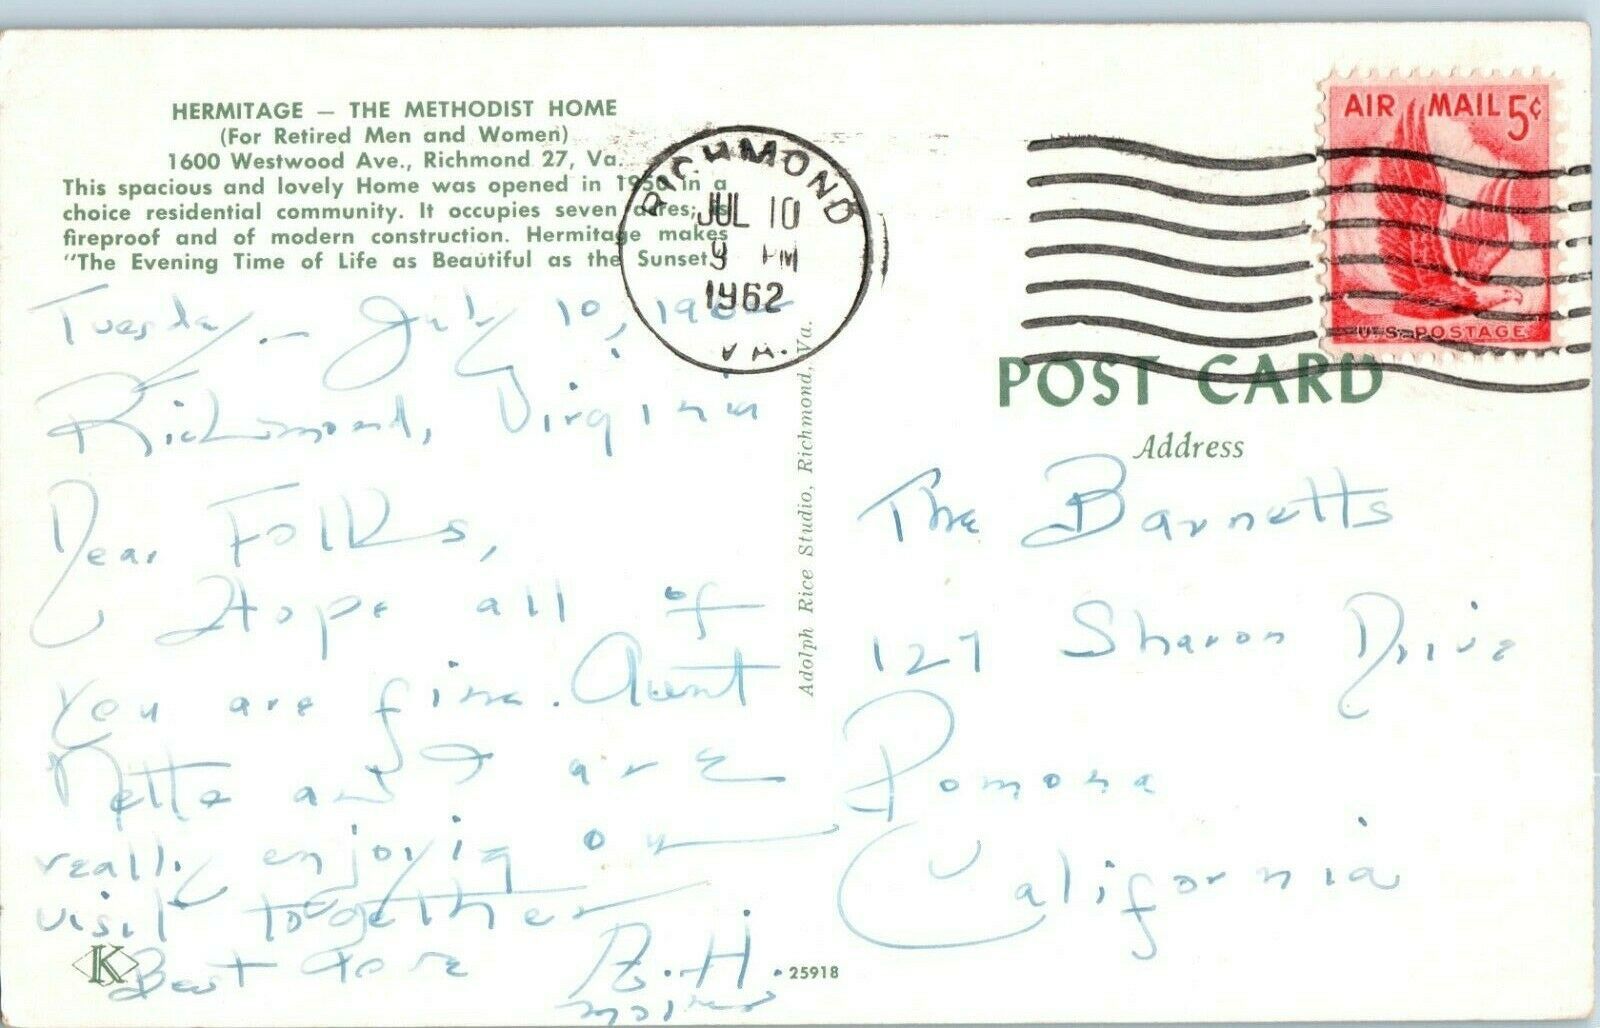 HERMITAGE — THE METHODIST HOME
(For Retired Men and Women)
1600 Westwood Ave., Richmond 27, Va.
This spacious and lovely Home was opened in 1950 in a
choice residential community. It occupies seven acres; is
fireproof and of modern construction. Hermitage makes
"The Evening Time of Life as Beautiful as the Sunset."
Tuesday - July 10, 1962
Richmond, Virginia
Dear Folks,
Hope all of
you are fine. Aunt
Nette and I are
really enjoying our
visit together
Best
R. H.
K
25918
Adolph Rice Studio, Richmond, Va.
RICHMOND
JUL 10
9 PM
1962
VA.
AIR MAIL 5¢
U.S. POSTAGE
POST CARD
Address
The Barnetts
127 Sharon Drive
Pomona
California